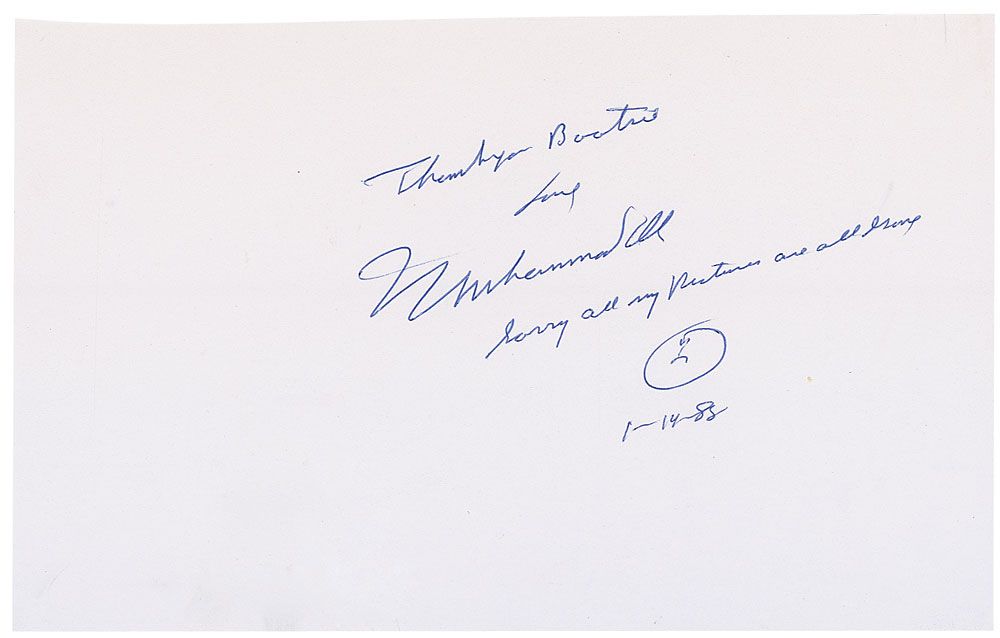 Thank you Bootsie
Love
Muhammad Ali
Sorry all my Pictures are all gone
1-14-85